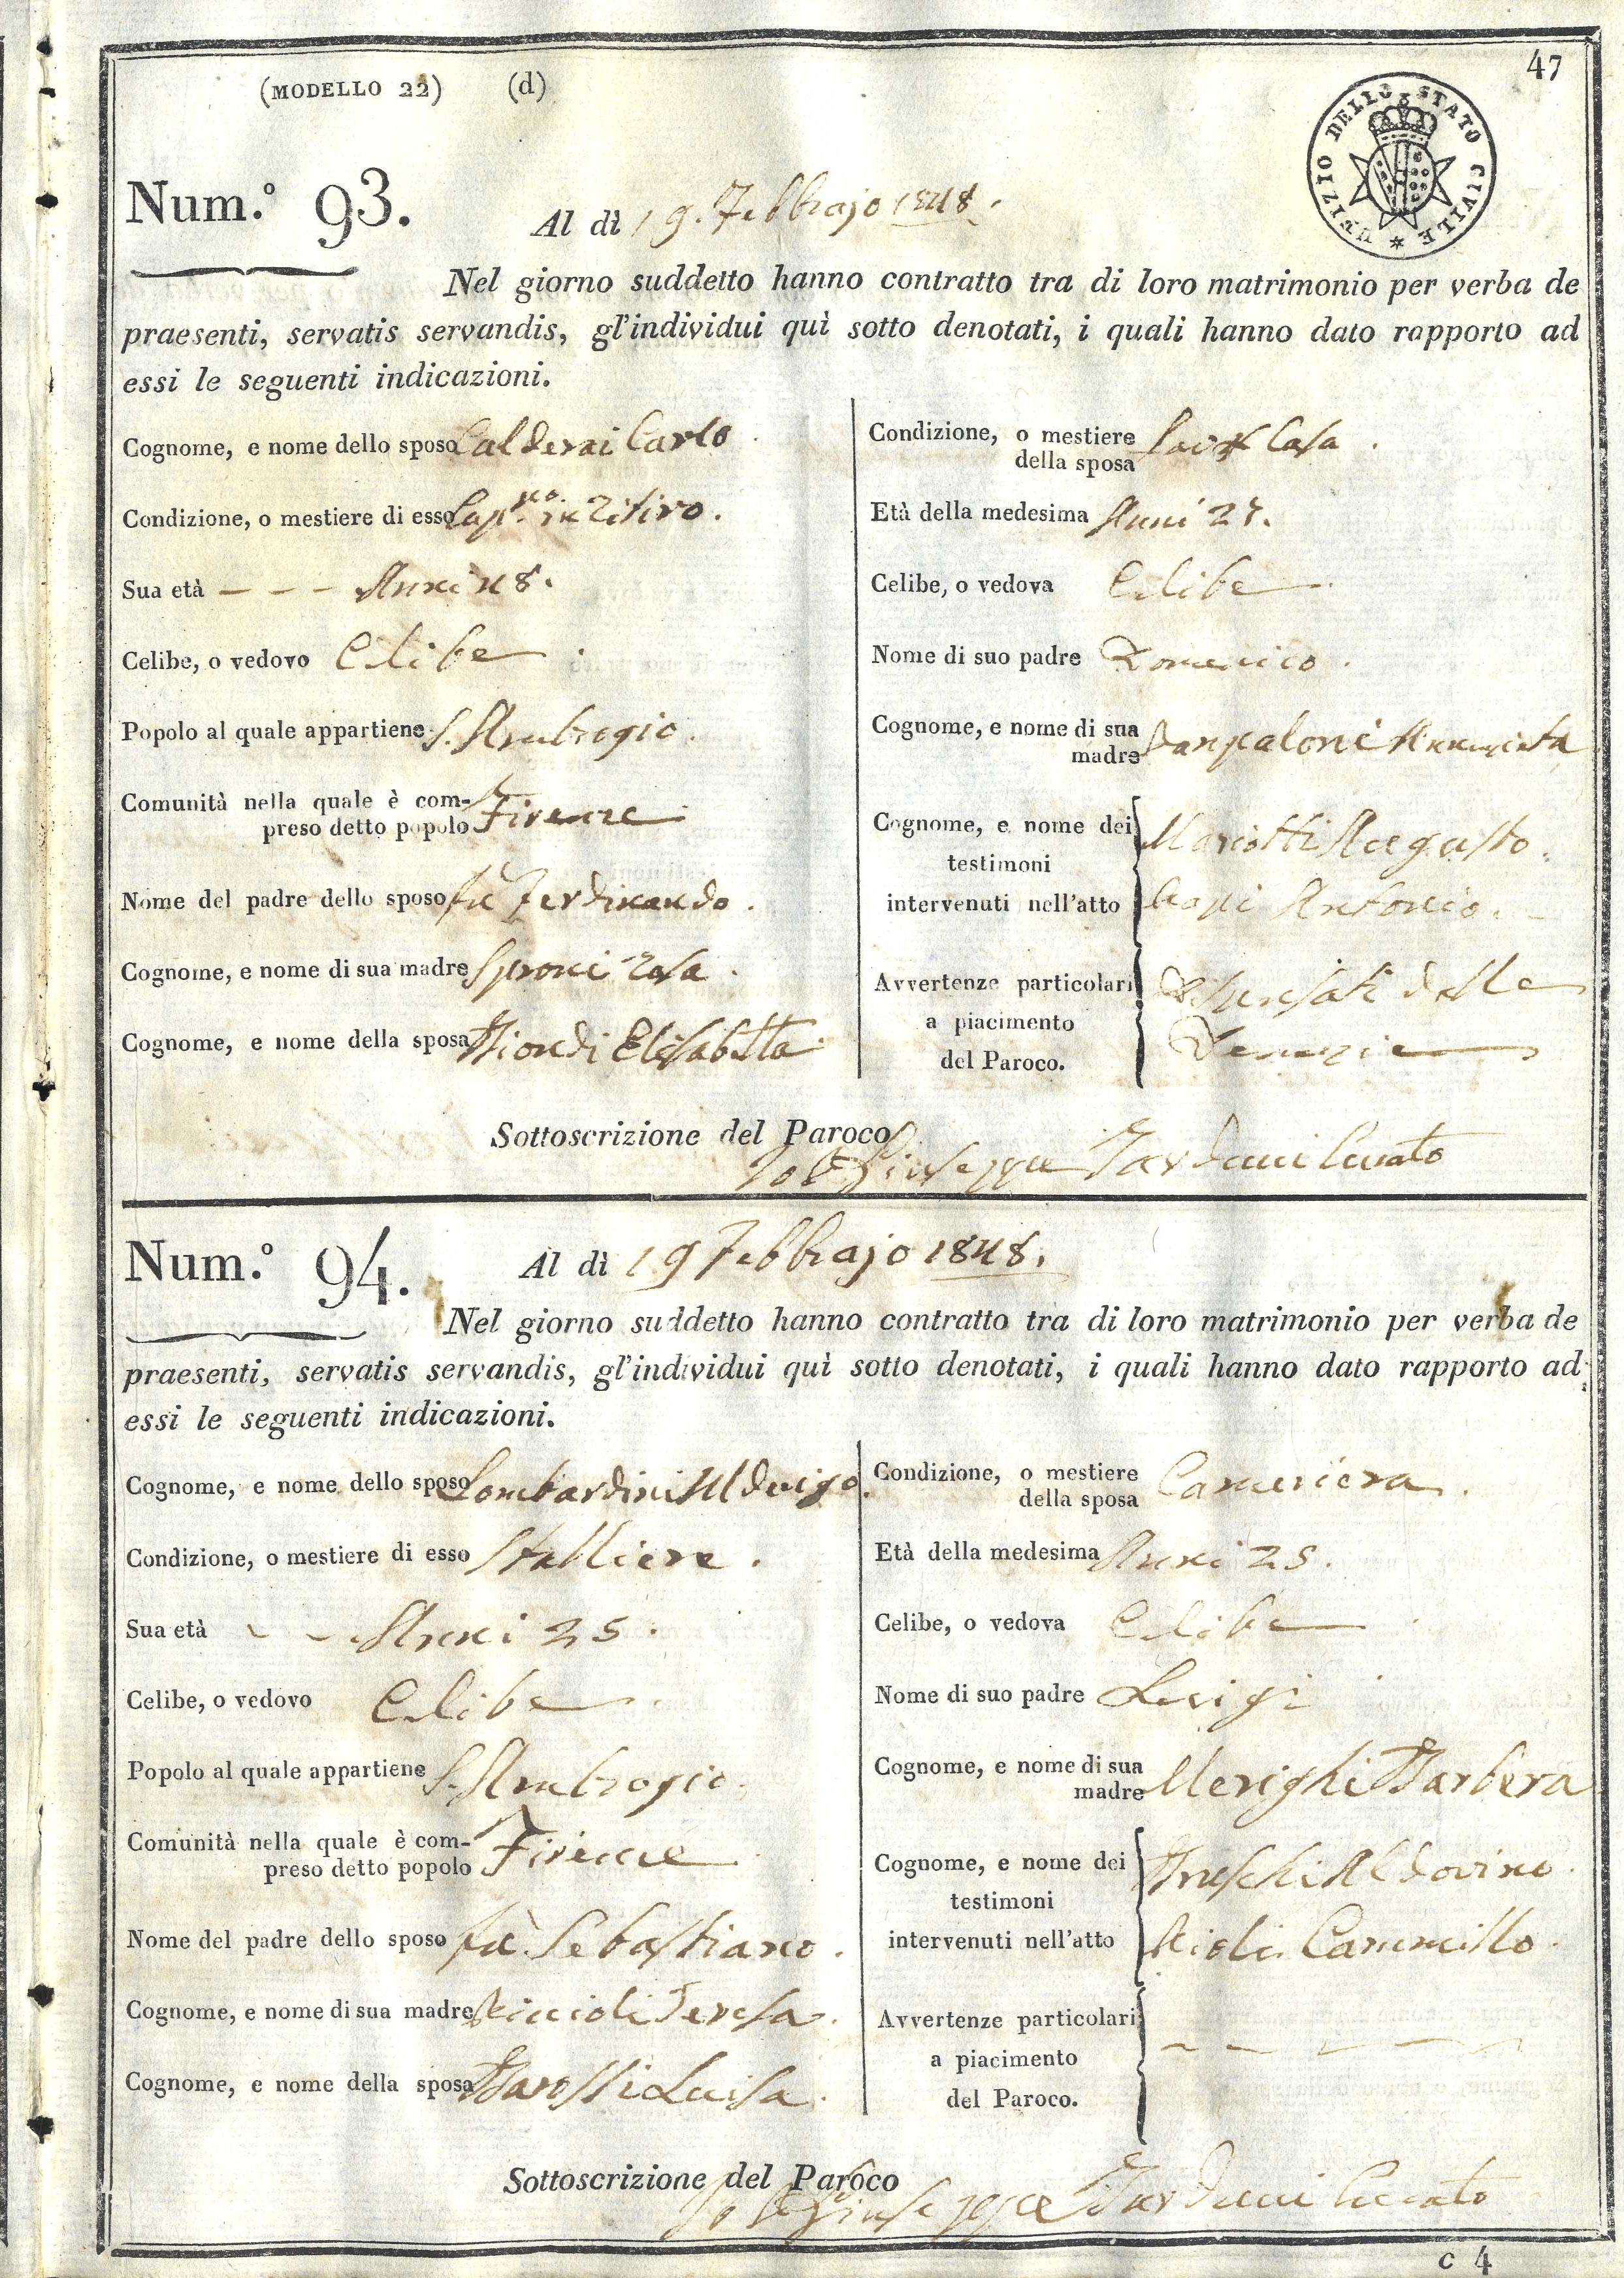 47
(MODELLO 22) (d)
UFIZIO DELLO STATO CIVILE
Num.° 93. Al dì 19. Febbrajo 1848.
Nel giorno suddetto hanno contratto tra di loro matrimonio per verba de
praesenti, servatis servandis, gl'individui quì sotto denotati, i quali hanno dato rapporto ad
essi le seguenti indicazioni.
Cognome, e nome dello sposo Calderai Carlo
Condizione, o mestiere di esso in Ritiro.
Sua età - - - Anni 48.
Celibe, o vedovo Celibe
Popolo al quale appartiene S. Ambrogio.
Comunità nella quale è com-
preso detto popolo Firenze
Nome del padre dello sposo fù Ferdinando.
Cognome, e nome di sua madre Sproni Rosa.
Cognome, e nome della sposa Biondi Elisabetta
Condizione, o mestiere
della sposa Casa.
Età della medesima Anni
Celibe, o vedova Celibe
Nome di suo padre Domenico.
Cognome, e nome di sua
madre Sanpaloni Annunziata
Cognome, e nome dei
testimoni
intervenuti nell'atto
Mariotti Augusto.
Antonio.
Avvertenze particolari
a piacimento
del Paroco.
Dispensati dalle
Denunzie
Sottoscrizione del Paroco
Io Giuseppe Curato
Num.° 94. Al dì 19 Febbrajo 1848.
Nel giorno suddetto hanno contratto tra di loro matrimonio per verba de
praesenti, servatis servandis, gl'individui quì sotto denotati, i quali hanno dato rapporto ad
essi le seguenti indicazioni.
Cognome, e nome dello sposo Lombardini Alduigo.
Condizione, o mestiere di esso Stalliere.
Sua età - - Anni 25.
Celibe, o vedovo Celibe
Popolo al quale appartiene S. Ambrogio.
Comunità nella quale è com-
preso detto popolo Firenze
Nome del padre dello sposo fù Sebastiano.
Cognome, e nome di sua madre Riccioli Teresa.
Cognome, e nome della sposa Luisa.
Condizione, o mestiere
della sposa Cameriera.
Età della medesima Anni 25.
Celibe, o vedova Celibe
Nome di suo padre Luigi
Cognome, e nome di sua
madre Merighi Barbera
Cognome, e nome dei
testimoni
intervenuti nell'atto
Bruschi Aldovino.
Cammillo.
Avvertenze particolari
a piacimento
del Paroco.
Sottoscrizione del Paroco
Io Giuseppe Curato
c 4